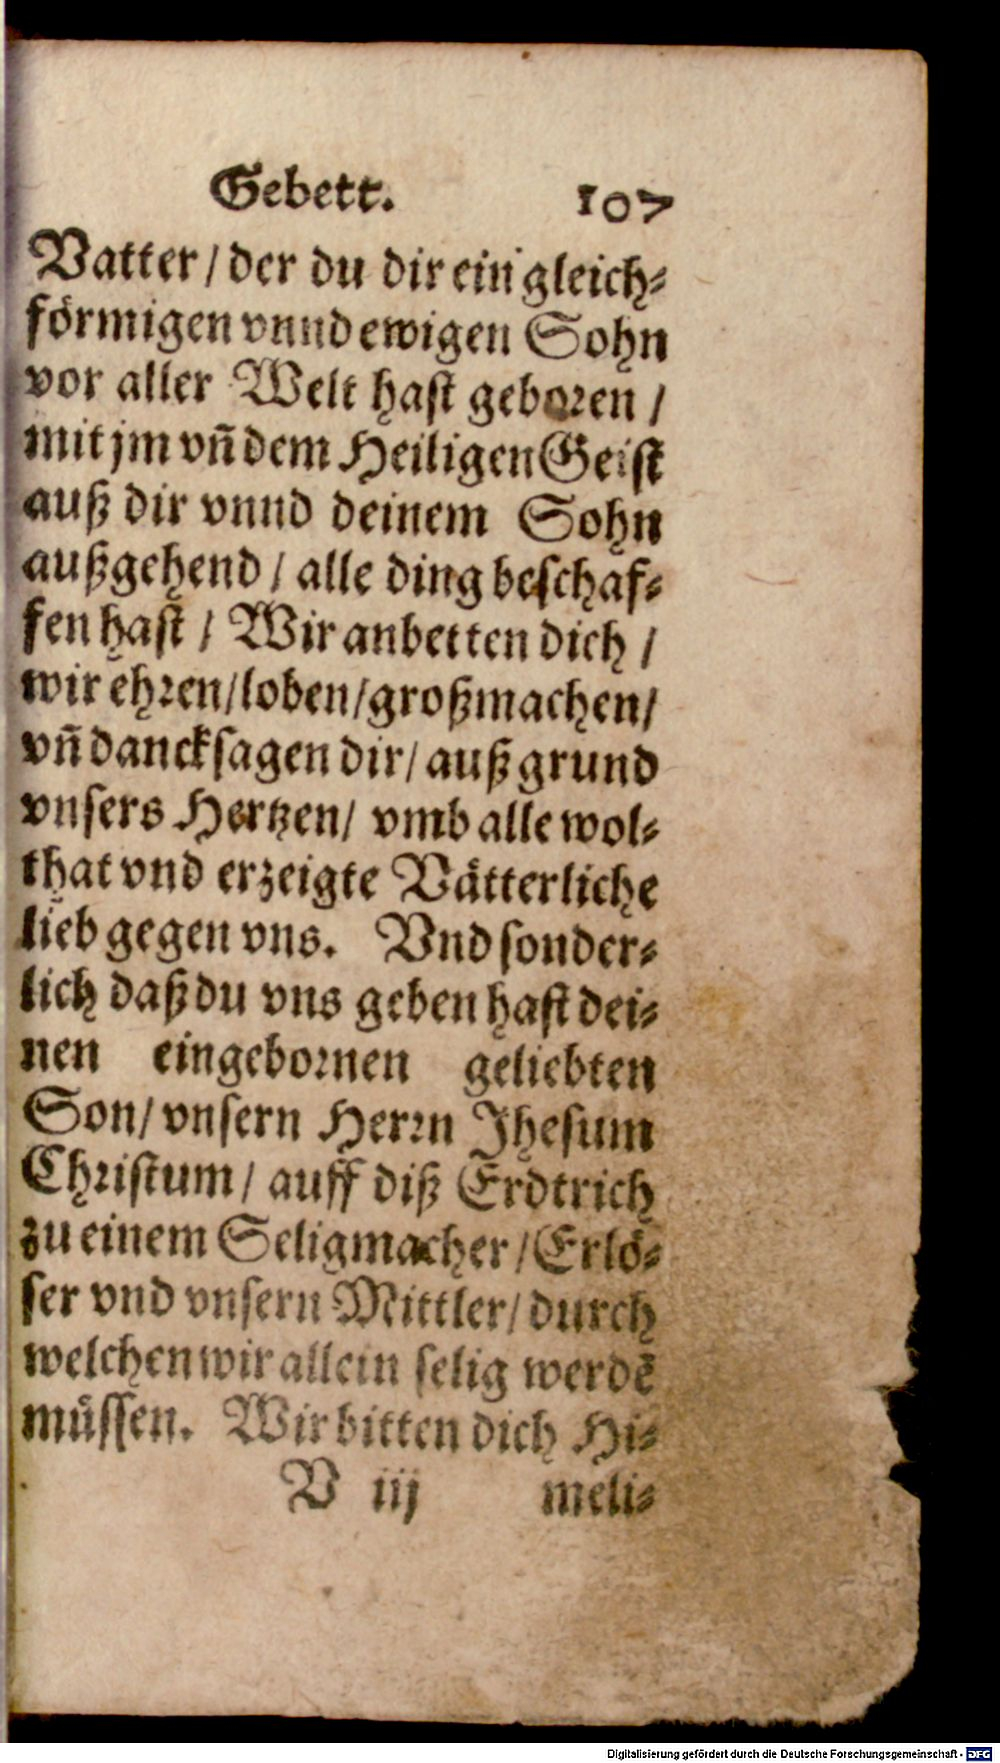 Gebett. 107
Vatter / der du dir ein gleich-
förmigen vnnd ewigen Sohn
vor aller Welt hast geboren /
mit jm vñ dem Heiligen Geist
auß dir vnnd deinem Sohn
außgehend / alle ding beschaf-
fen hast / Wir anbetten dich /
wir ehren / loben / großmachen /
vñ dancksagen dir / auß grund
vnsers Hertzen / vmb alle wol-
that vnd erzeigte Vätterliche
lieb gegen vns. Vnd sonder-
lich daß du vns geben hast dei-
nen eingebornen geliebten
Son / vnsern Herrn Jhesum
Christum / auff diß Erdtrich
zu einem Seligmacher / Erlö-
ser vnd vnsern Mittler / durch
welchen wir allein selig werdẽ
müssen. Wir bitten dich Hi-
V iij meli-
Digitalisierung gefördert durch die Deutsche Forschungsgemeinschaft - DFG